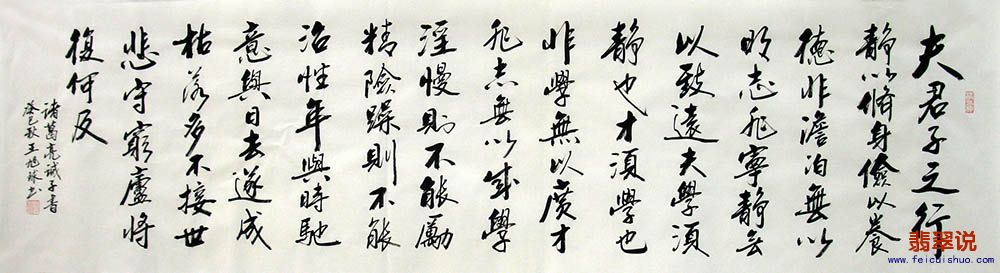 夫君子之行
静以脩身儉以養
德非澹泊無以
明志非寧静无
以致遠夫學須
静也才須學也
非學無以廣才
非志無以成學
淫慢則不能勵
精險躁則不能
治性年與時馳
意與日去遂成
枯落多不接世
悲守窮廬將
復何及
诸葛亮诫子書
癸巳秋王旭林书
翡翠说
www.feicuishuo.com